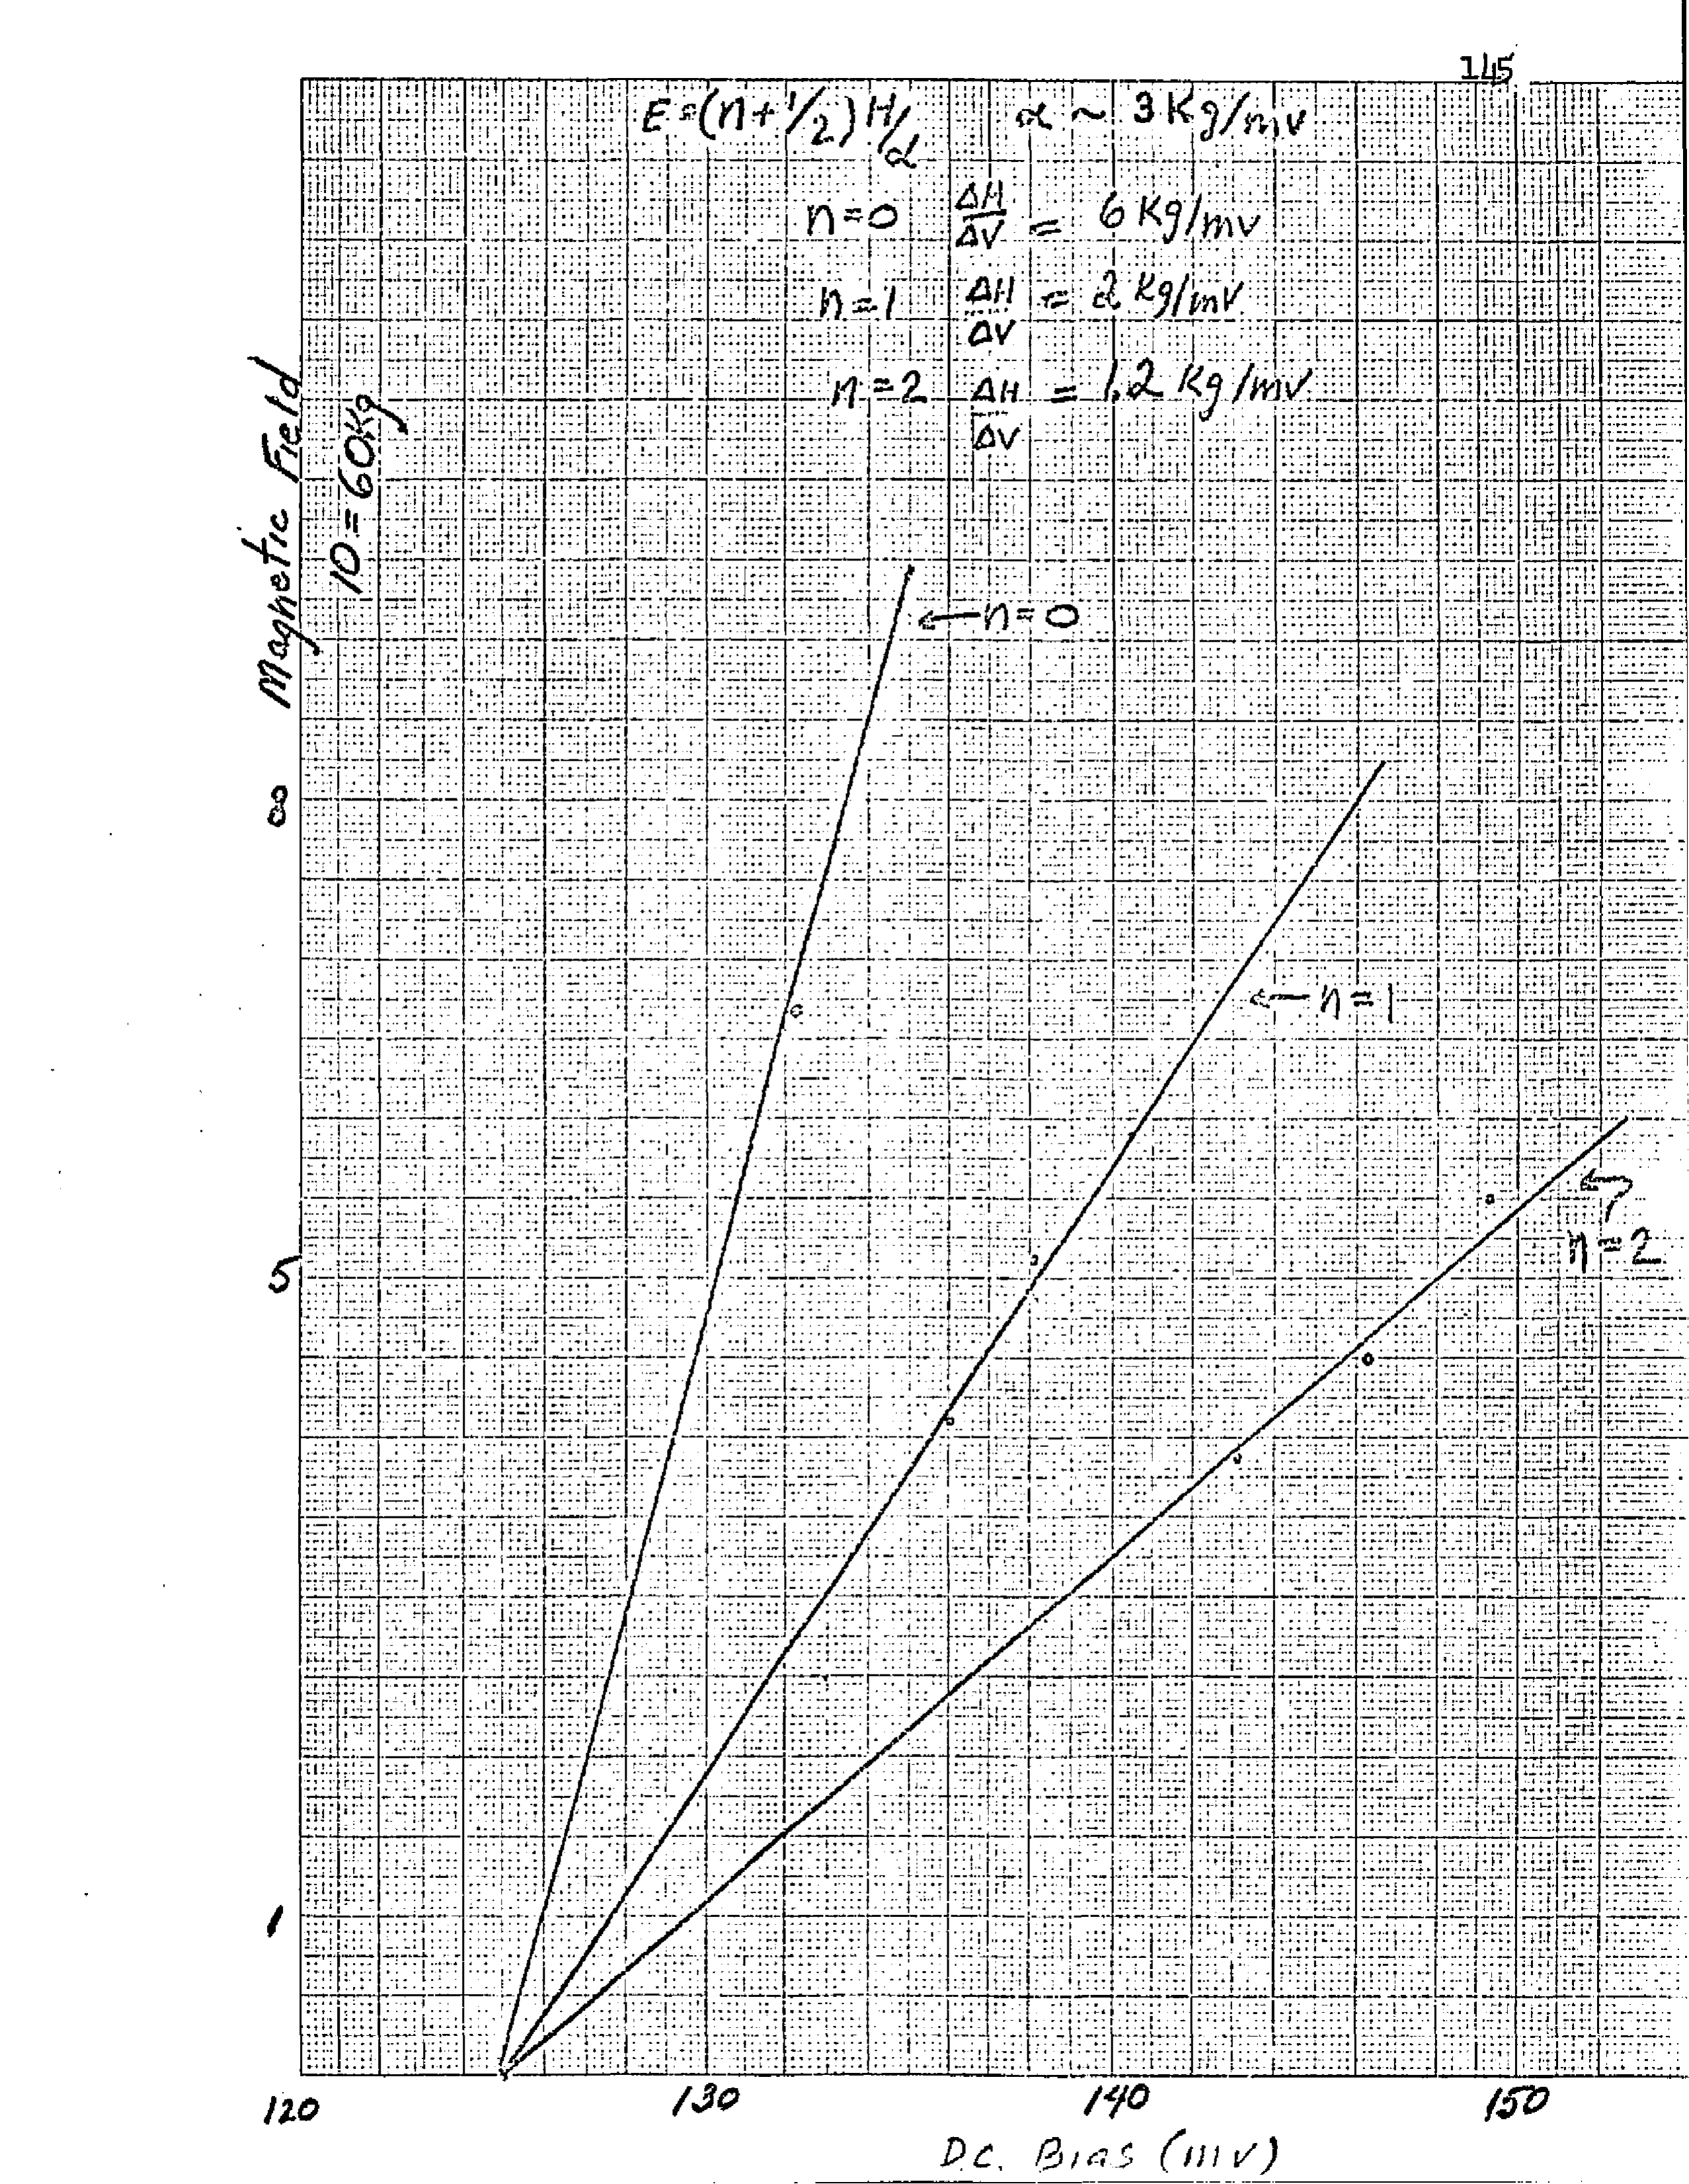 145
E=(n+1/2)H/α   α ~ 3 Kg/mv
n=0 ΔH/ΔV = 6 Kg/mv
n=1 ΔH/ΔV = 2 Kg/mV
n=2 ΔH/ΔV = 1.2 Kg/mv
Magnetic Field
10=60Kg
←n=0
8
←n=1
←
n=2
5
1
120 130 140 150
D.C. Bias (mv)